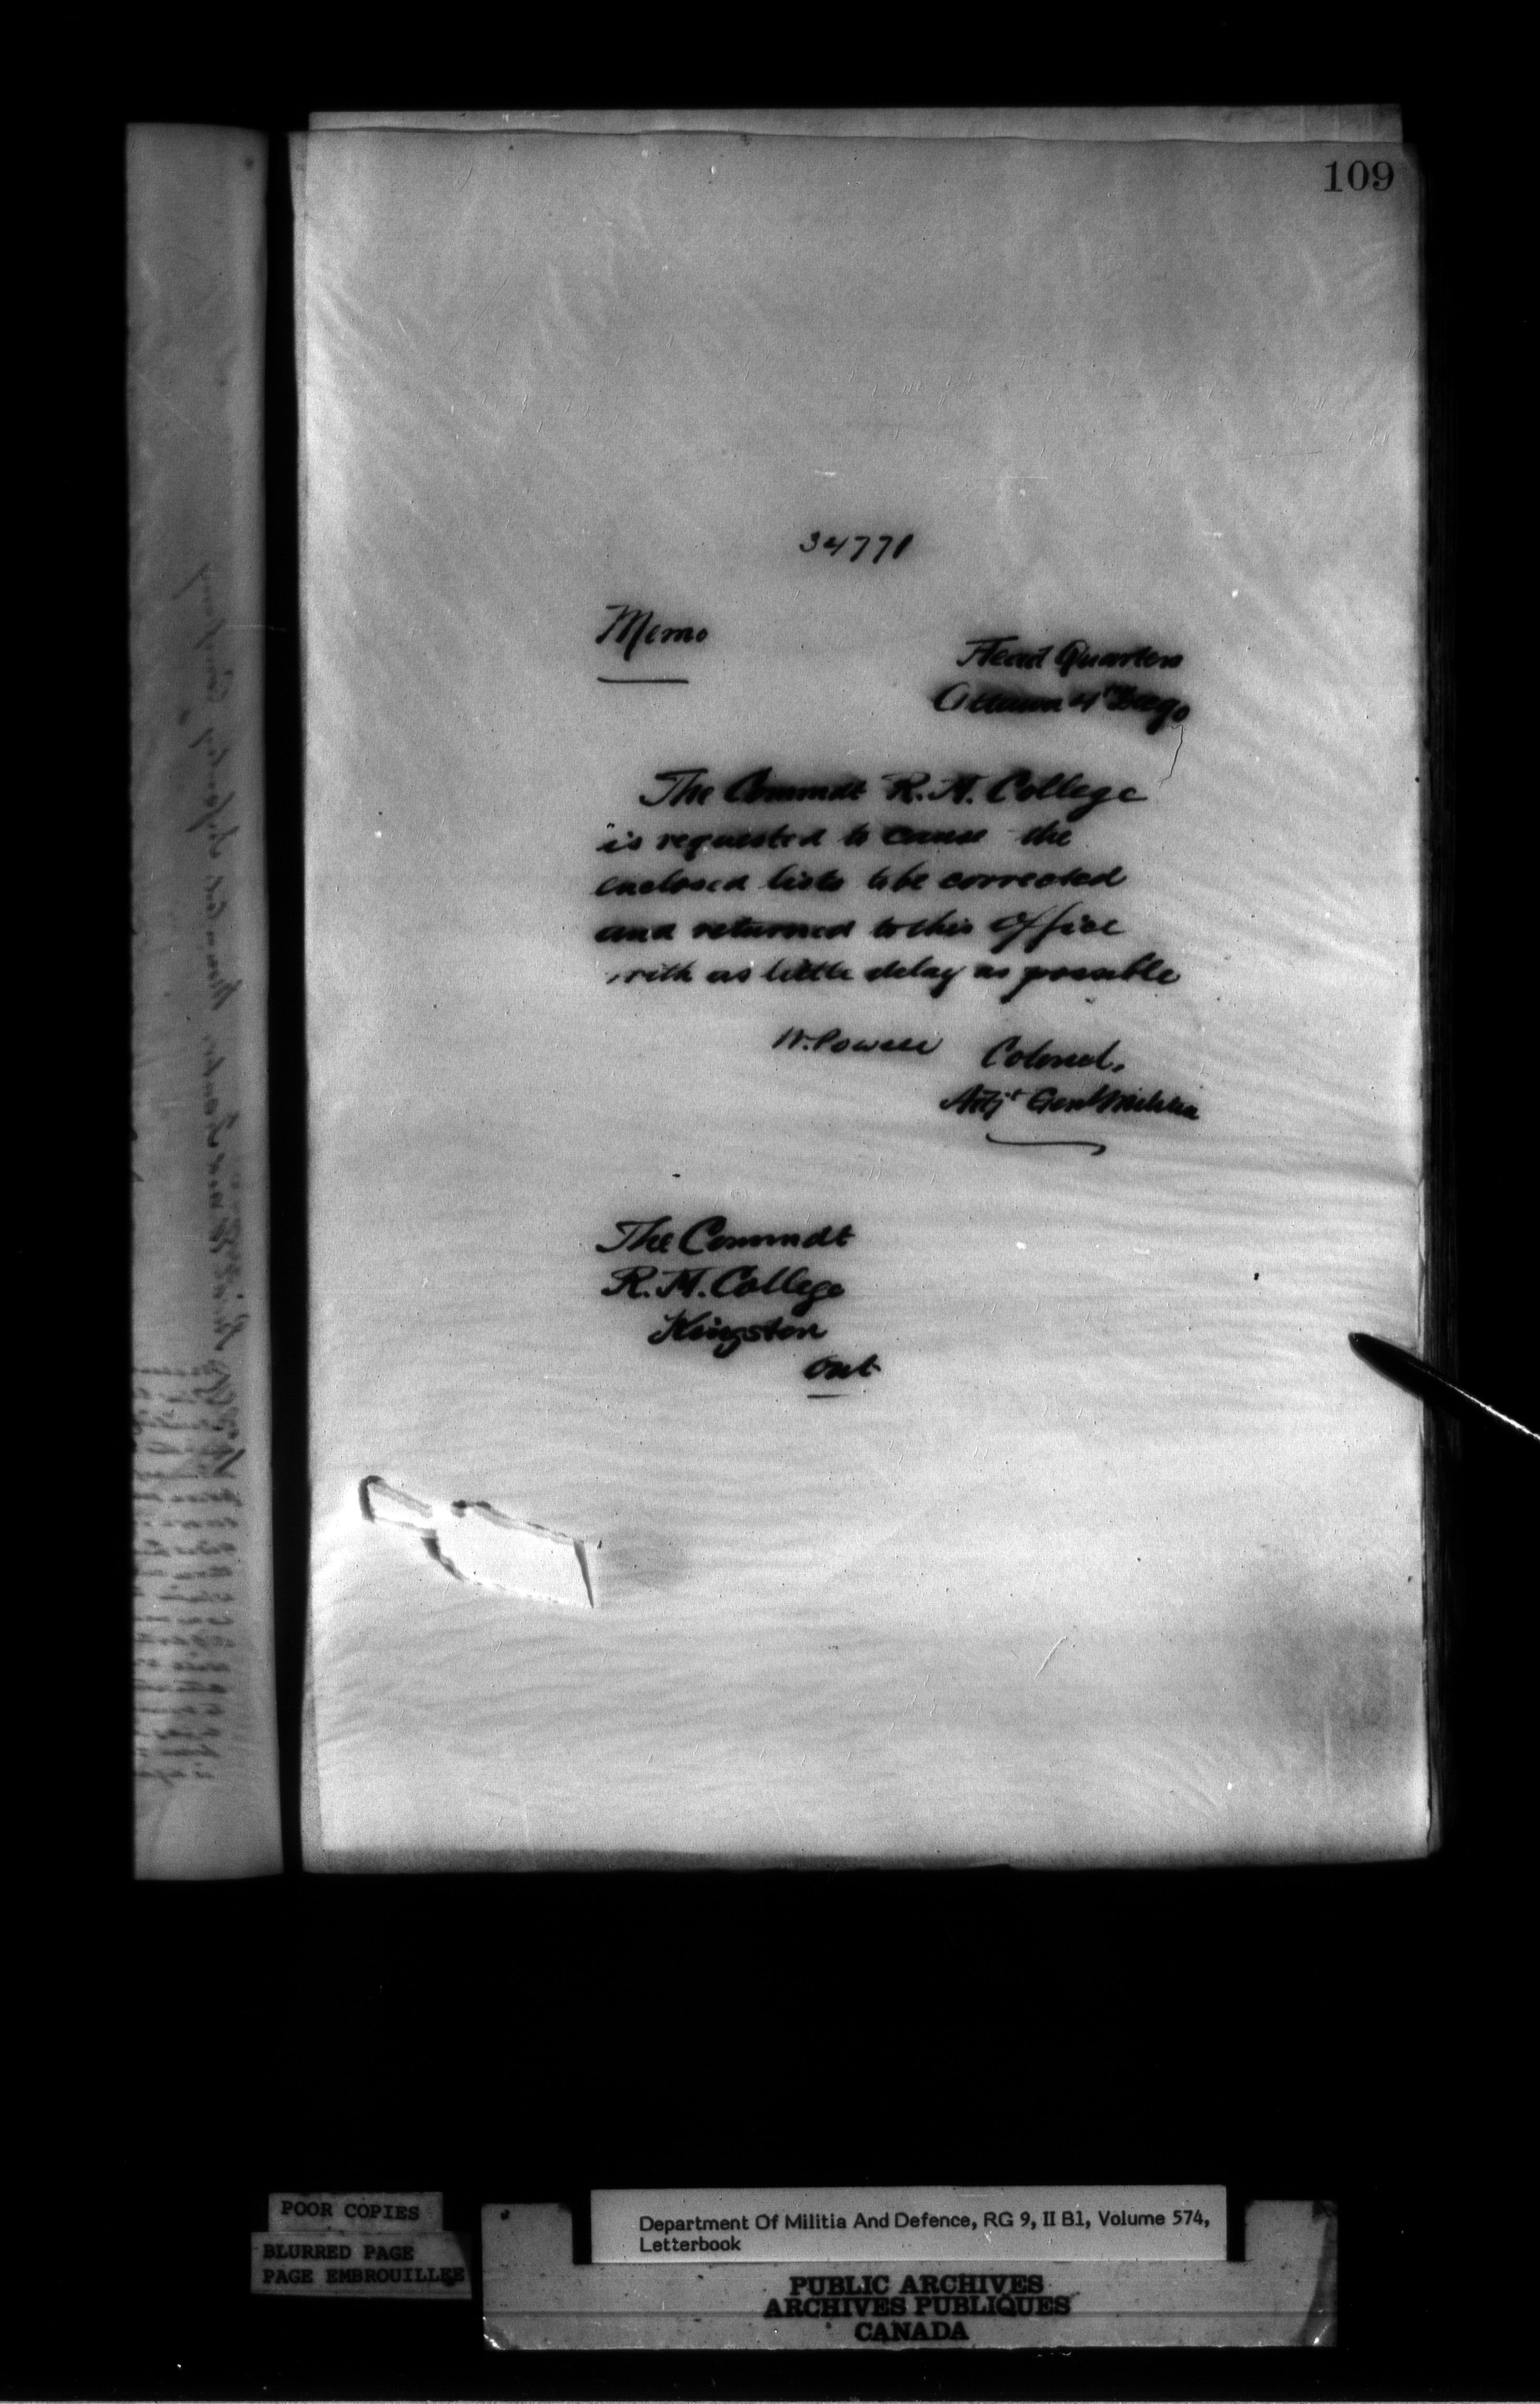 109
34778
Memo
Head Quarters
Ottawa 4 Dec 90
The Commdt R. M. College
is requested to cause the
enclosed lists to be corrected
and returned to this Office
with as little delay as possible
W. Powell Colonel,
Adjt Genl Militia
The Commdt
R. M. College
Kingston
Ont
POOR COPIES
BLURRED PAGE
PAGE EMBROUILLEE
Department Of Militia And Defence, RG 9, II B1, Volume 574,
Letterbook
PUBLIC ARCHIVES
ARCHIVES PUBLIQUES
CANADA